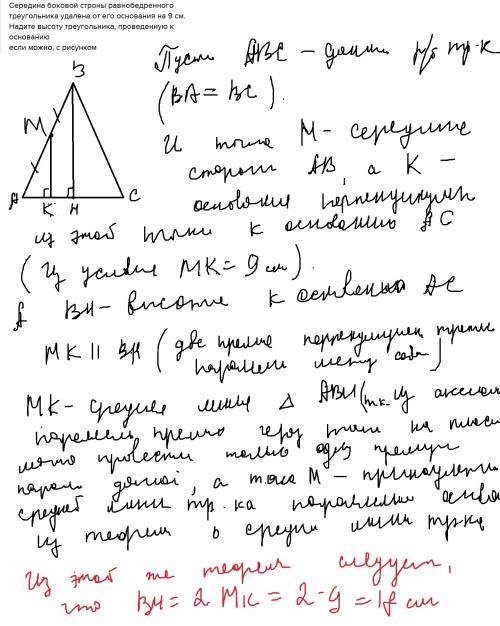 Середина боковой строны равнобедренного
треугольника удалена от его основания на 9 см.
Надите высоту треугольника, проведенную к
основанию
если можно, с рисунком
Пусть ABC – данн р/б тр-к
(BA = BC).
B
M
A K H C
И точка M – середине
сторон AB, а K –
основания перпендикуляр
из этой точки к основанию AC
(Из условия MK = 9 см).
А BH – высоте к основанию AC
MK || BH (две прямые перпендикуляр третьей
параллел между собой)
MK – средняя линия △ ABH (т.к. из аксиом
паралел прямых через точку на плоск
провести только одну прямую
парал данной, а точка M – принадлежит
средней линии тр-ка параллельно основ
из теорем о средней линии тр-ка
Из этой же теорем следует,
что BH = 2 MK = 2·9 = 18 см